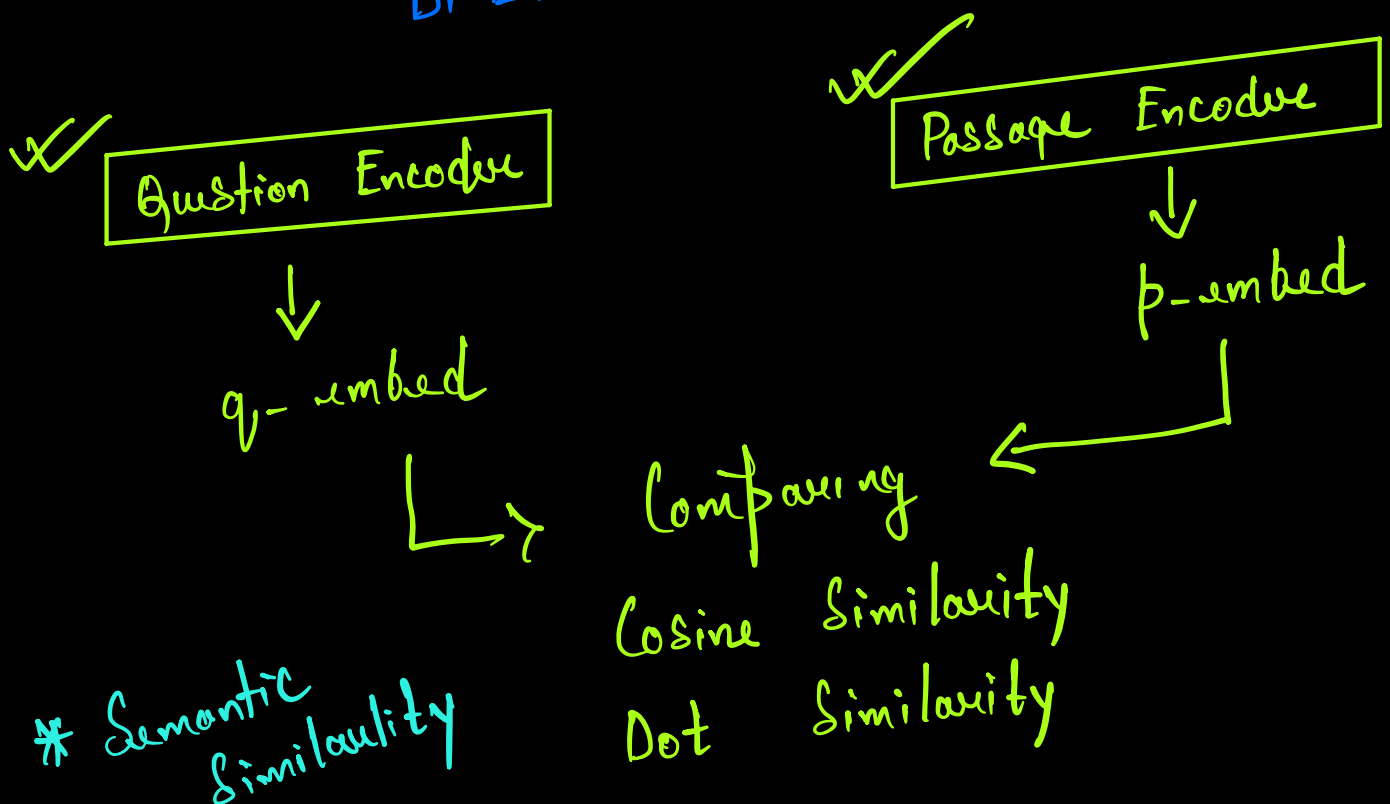 Question Encoder
Passage Encoder
q- embed
p-embed
Comparing
Cosine Similarity
Dot Similarity
* Semantic
Similarlity